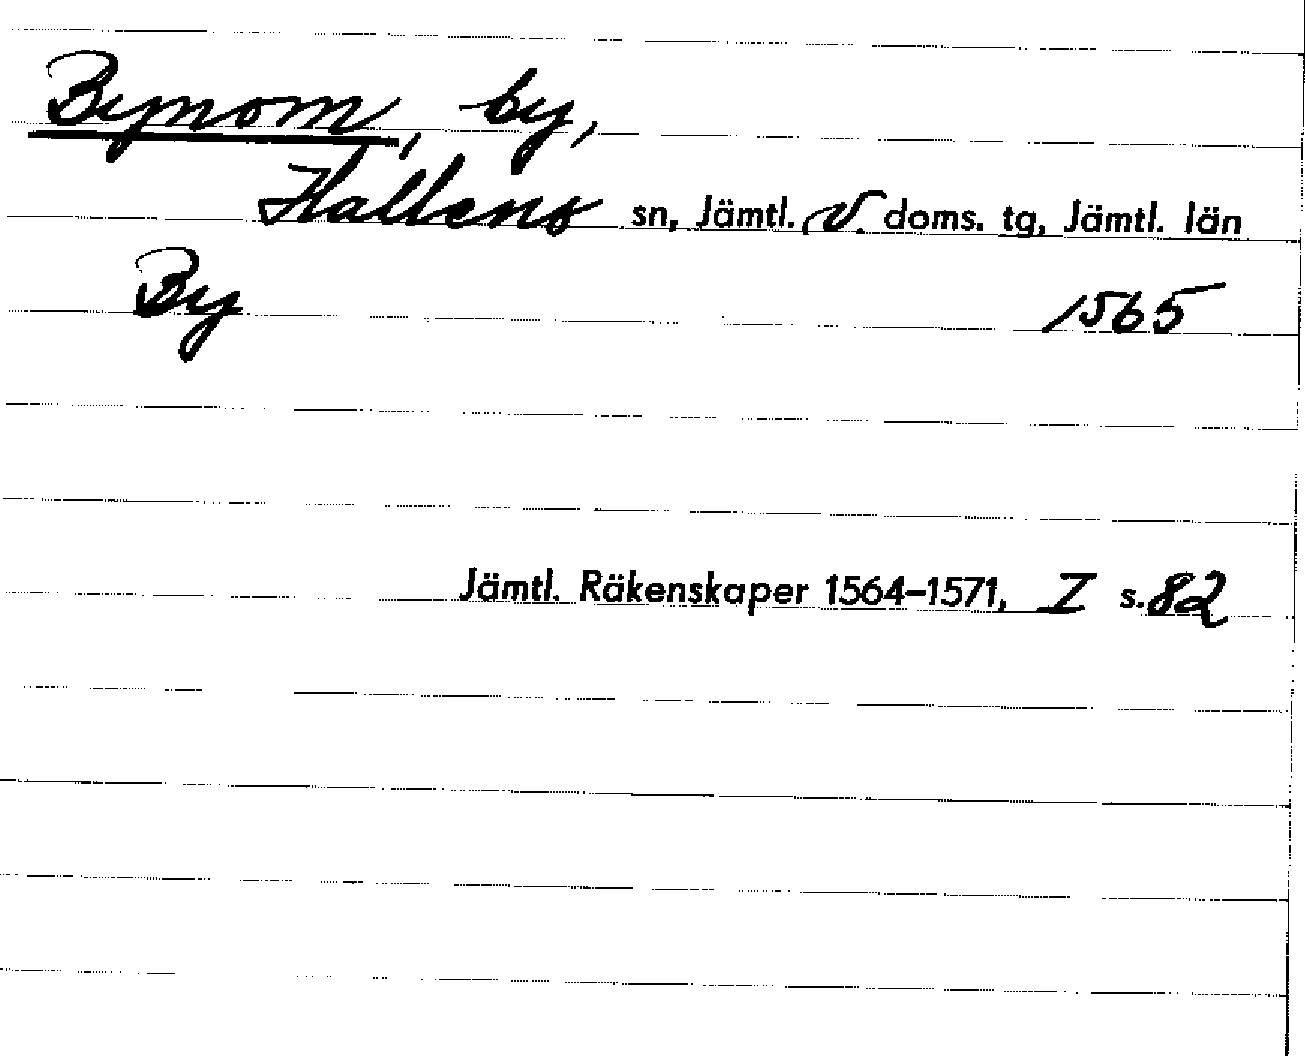 Bynom, by,
Hallens sn, Jämtl. V. doms. tg, Jämtl. län
By 1565
Jämtl. Räkenskaper 1564–1571, I s. 82